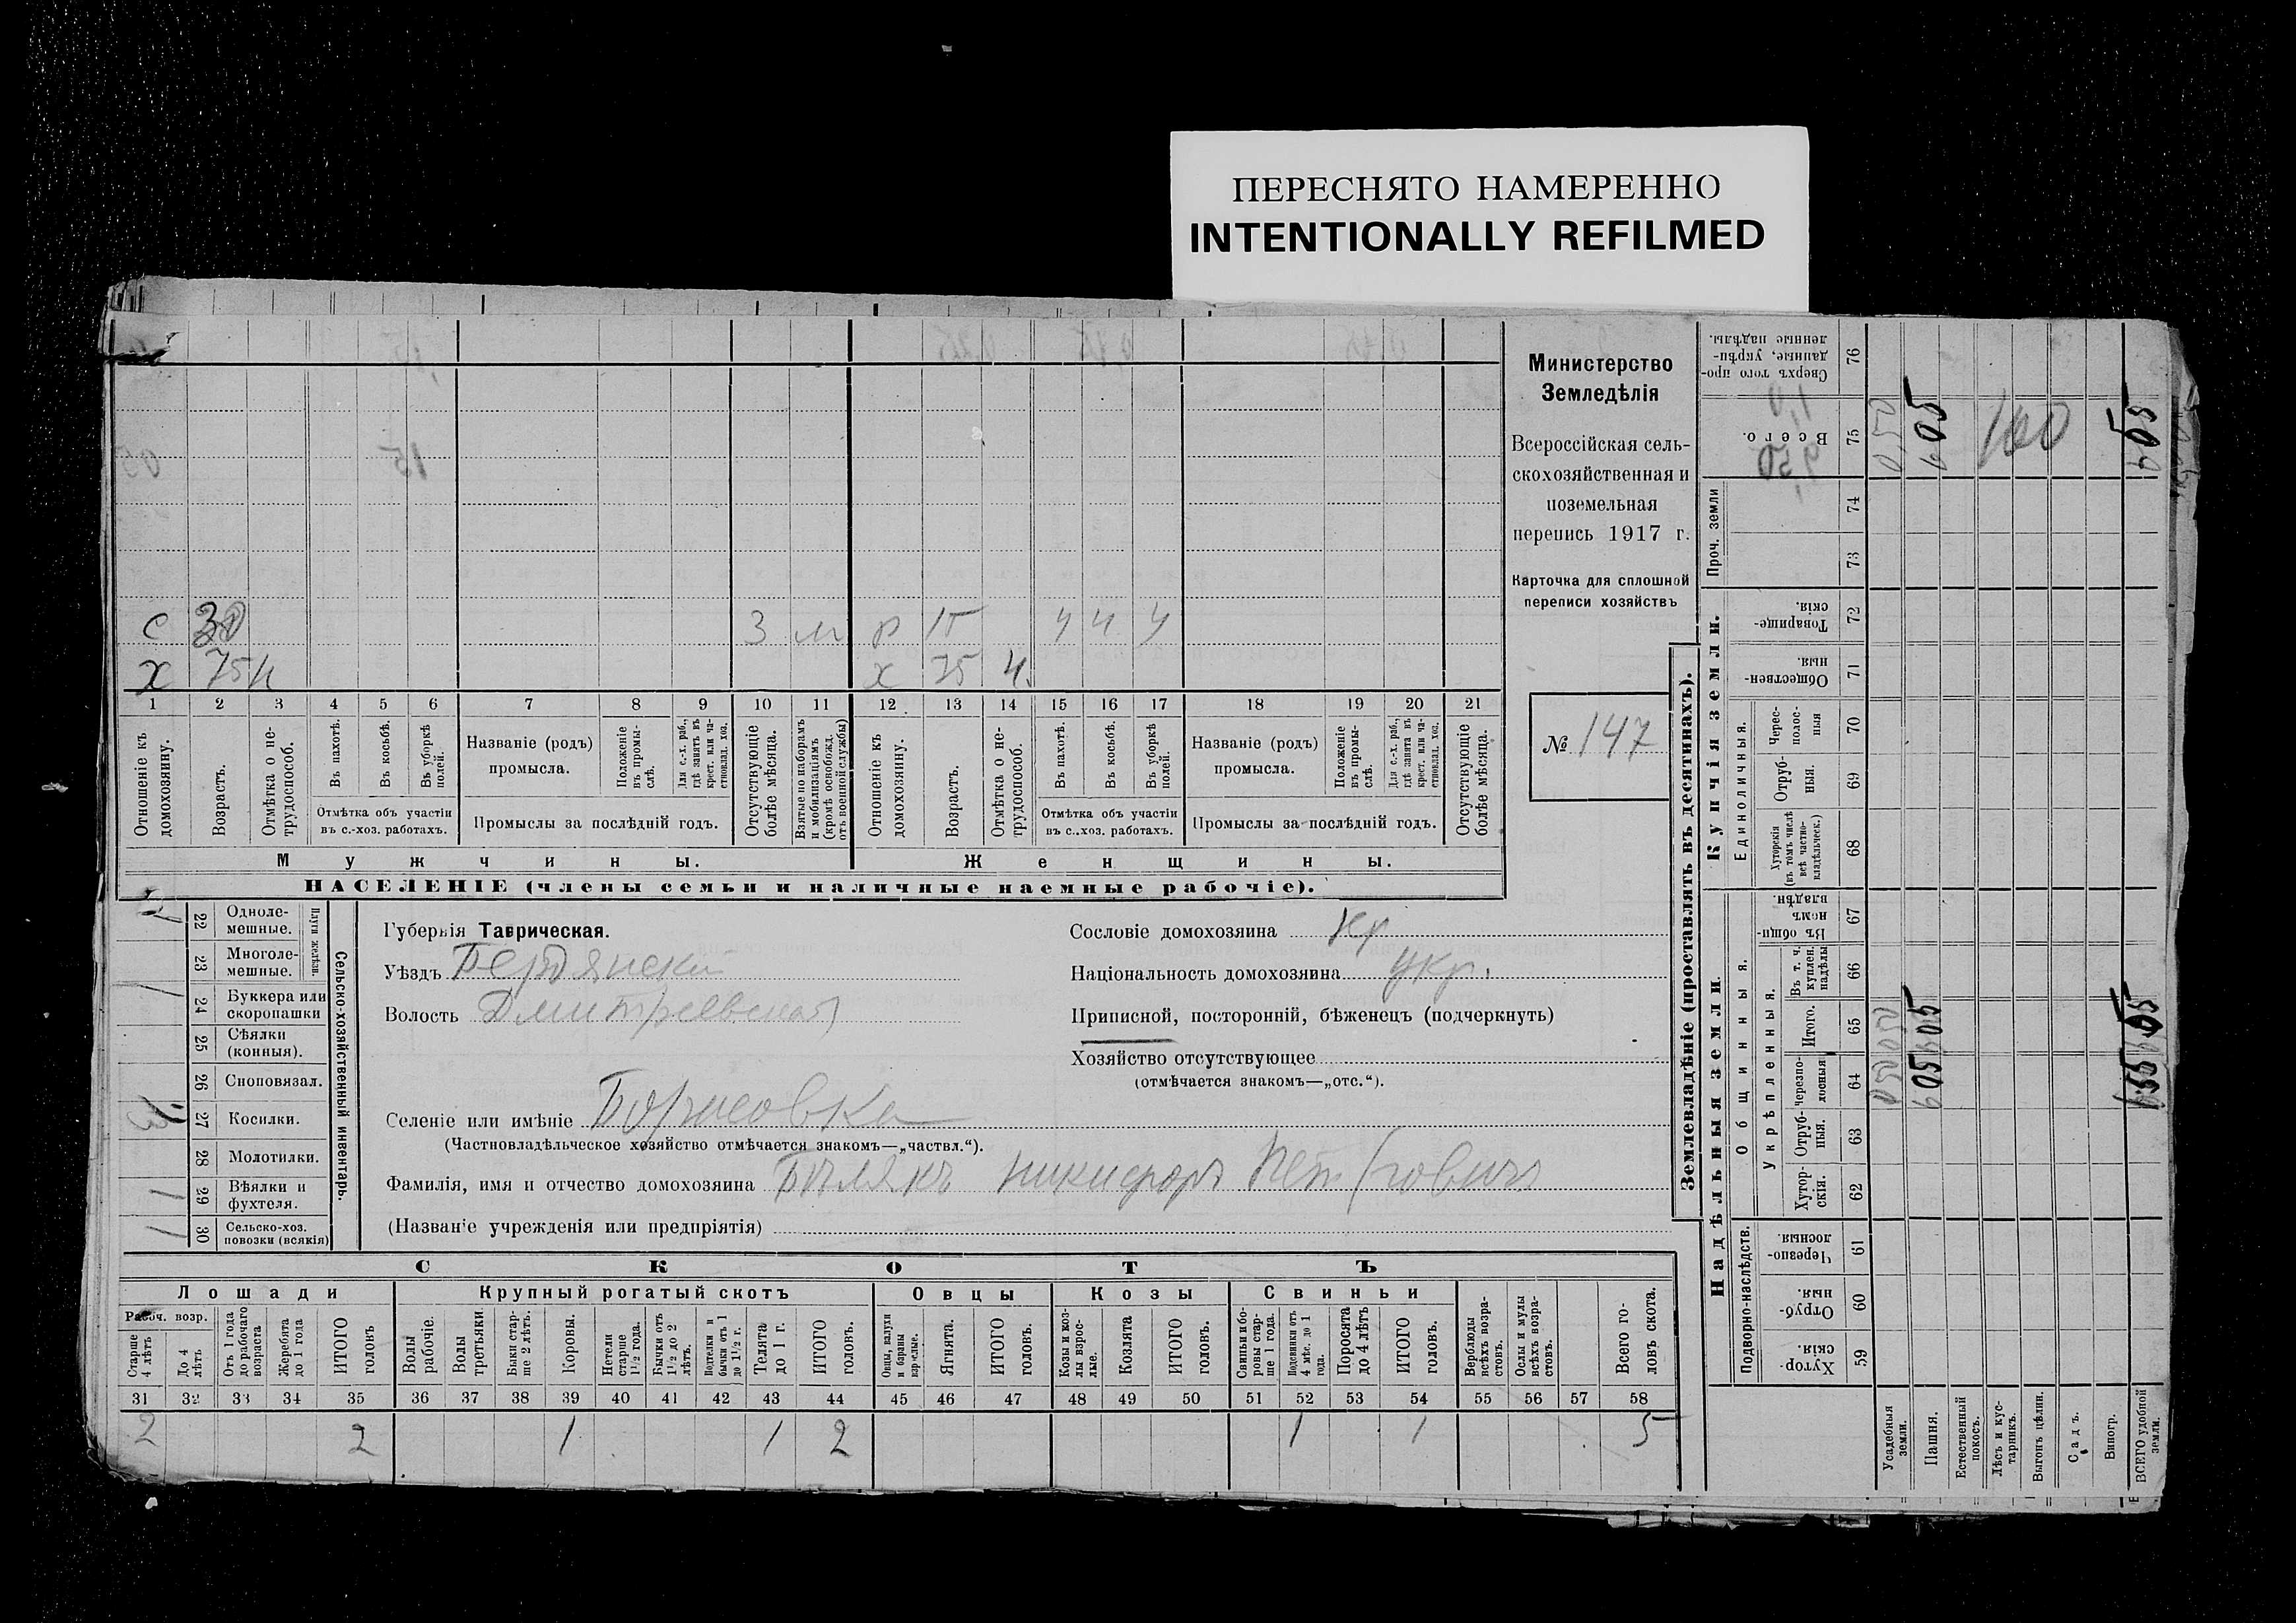 ПЕРЕСНЯТО НАМЕРЕННО
INTENTIONALLY REFILMED
Министерство
Земледѣлія
Всероссійская сель-
скохозяйственная и
поземельная
перепись 1917 г.
Карточка для сплошной
переписи хозяйствъ
№ 147
с 30 3 м р 15 ч ч ч
х 75 н х 75 ч
1 2 3 4 5 6 7 8 9 10 11 12 13 14 15 16 17 18 19 20 21
Отношеніе къ домохозяину.
Возрастъ.
Отмѣтка о не-трудоспособ.
Въ пахотѣ.
Въ косьбѣ.
Въ уборкѣ полей.
Отмѣтка объ участіи
въ с.-хоз. работахъ.
Названіе (родъ)
промысла.
Положеніе въ промы-слѣ.
Для с.-х. раб., гдѣ занятъ въ крест. или ча-стновлад. хоз.
Промыслы за послѣдній годъ.
Отсутствующіе болѣе мѣсяца.
Взятые по наборамъ и мобилизаціямъ (кромѣ освобожд. отъ военной службы)
Отношеніе къ домохозяину.
Возрастъ.
Отмѣтка о не-трудоспособ.
Въ пахотѣ.
Въ косьбѣ.
Въ уборкѣ полей.
Отмѣтка объ участіи
въ с.-хоз. работахъ.
Названіе (родъ)
промысла.
Положеніе въ промы-слѣ.
Для с.-х. раб., гдѣ занята въ крест. или ча-стновлад. хоз.
Промыслы за послѣдній годъ.
Отсутствующіе болѣе мѣсяца.
Мужчины.
Женщины.
НАСЕЛЕНІЕ (члены семьи и наличные наемные рабочіе).
Сельско-хозяйственный инвентарь.
Плуги желѣзн.
22 Одноле-мешные.
23 Многоле-мешные.
24 Буккера или скоропашки
25 Сѣялки (конныя).
26 Сноповязал.
27 Косилки.
28 Молотилки.
29 Вѣялки и фухтеля.
30 Сельско-хоз. повозки (всякія)
Губернія Таврическая.
Уѣздъ Бердянскій
Волость Дмитріевская
Сословіе домохозяина кр
Національность домохозяина укр.
Приписной, посторонній, бѣженецъ (подчеркнуть)
Хозяйство отсутствующее
(отмѣчается знакомъ—„отс.“).
Селеніе или имѣніе Борисовка
(Частновладѣльческое хозяйство отмѣчается знакомъ—„частвл.“).
Фамилія, имя и отчество домохозяина Бѣлякъ Никифоръ Петровичъ
(Названіе учрежденія или предпріятія)
СКОТЪ
Лошади
Крупный рогатый скотъ
Овцы
Козы
Свиньи
Рабоч. возр.
Старше 4 лѣтъ
До 4 лѣтъ
Отъ 1 года до рабочаго возраста
Жеребята до 1 года
ИТОГО головъ
Волы рабочіе.
Волы третьяки
Быки стар-ше 2 лѣтъ.
Коровы.
Нетели старше 1½ года.
Бычки отъ 1½ до 2 лѣтъ.
Подтелки и бычки отъ 1 до 1½ г.
Телята до 1 г.
ИТОГО головъ.
Овцы, валухи и бараны взрослые.
Ягнята.
ИТОГО головъ.
Козы и коз-лы взрос-лые.
Козлята
ИТОГО головъ.
Свиньи и бо-ровы стар-ше 1 года.
Подсвинки отъ 4 мѣс. до 1 года.
Поросята до 4 лѣтъ
ИТОГО головъ.
Верблюды всѣхъ возра-стовъ.
Ослы и мулы всѣхъ возра-стовъ.
Всего го-ловъ скота.
31 32 33 34 35 36 37 38 39 40 41 42 43 44 45 46 47 48 49 50 51 52 53 54 55 56 57 58
2 2 1 1 2 1 1 5
Землевладѣніе (проставлять въ десятинахъ).
Надѣльныя земли.
Купчія земли.
Подворно-наслѣдств.
Общинныя.
Укрѣпленныя.
Единоличныя.
Проч. земли
59 Хутор-скія.
60 Отруб-ныя.
61 Черезпо-лосныя
62 Хутор-скія.
63 Отруб-ныя.
64 Черезпо-лосныя
65 Итого.
66 Въ т. ч. куплен. надѣлы
67 Въ общи-номъ владѣн.
68 Хуторскія (въ томъ числѣ всѣ частно-владѣльческ.)
69 Отруб-ныя.
70 Черес-полос-ныя
71 Обществен-ныя.
72 Товарище-скія.
73
74
75 Всего.
76 Сверхъ того про-данные, укрѣп-ленные надѣлы.
Усадебныя земли.
Пашня.
Естественный покосъ.
Лѣсъ и кус-тарникъ.
Выгонъ цѣлин.
Садъ.
Виногр.
ВСЕГО удобной земли.